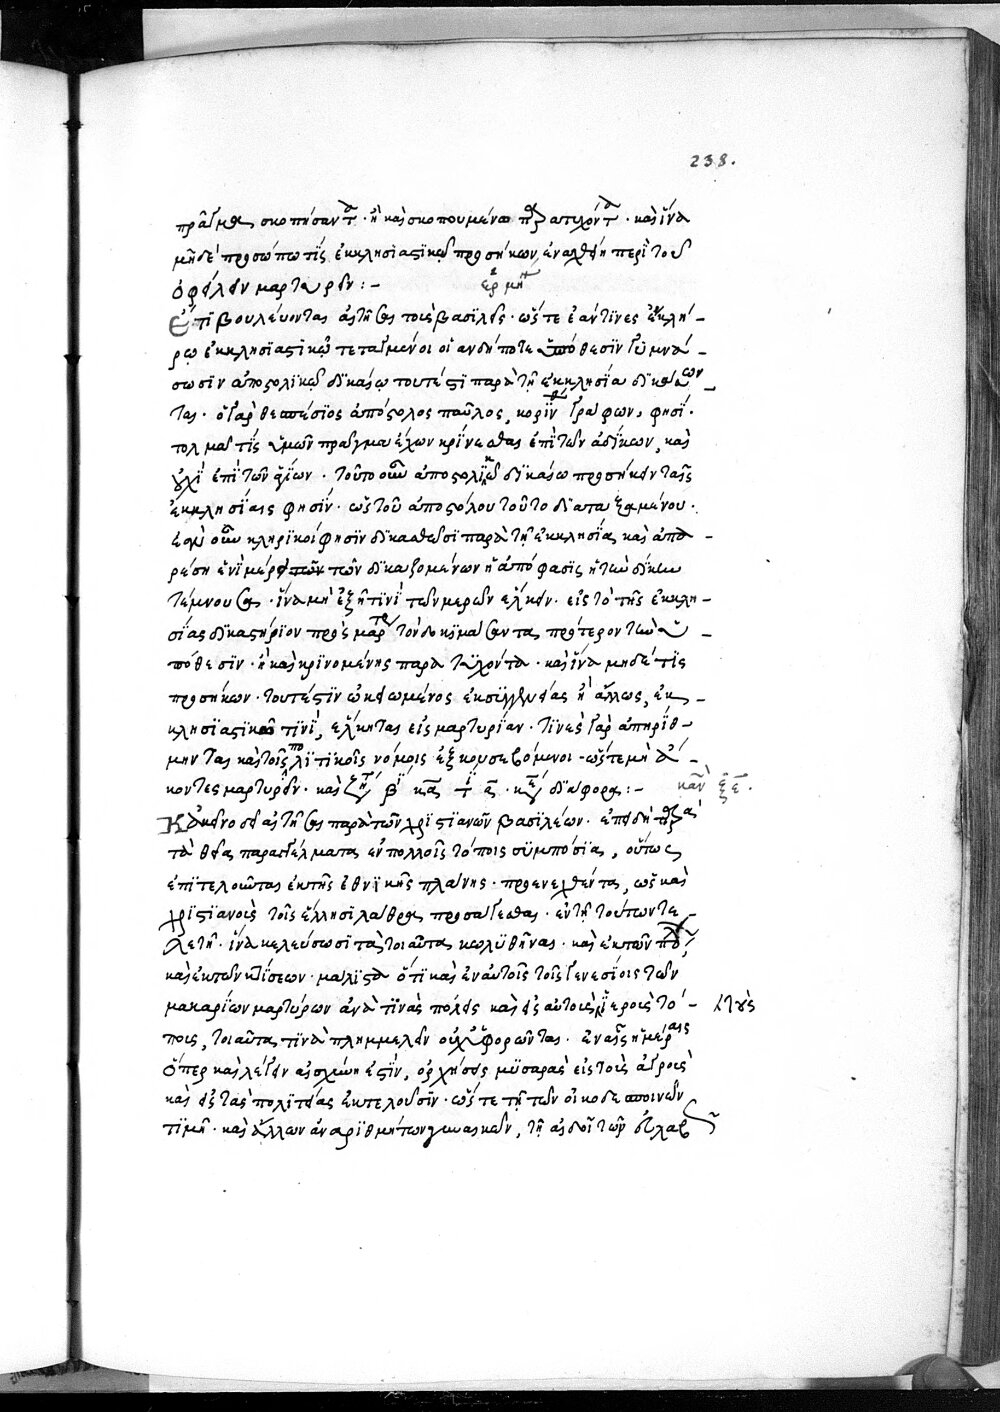 238.
πρᾶγμα σκοπήσαντα · ἢ καὶ σκοπουμένω · καὶ ἵνα
μηδὲ προσώπω τίς ἐκκλησιαστικῶ προσήκων,
ὀφείλειν μαρτυρεῖν : -
ἑρμη
Ἐπιβουλεύονται αἰτῆσαι τοὺς βασιλεῖς · ὥστε ἐάν τινες ἐν κλή-
ρω ἐκκλησιαστικῶ τεταγμένοι οἱανδήποτε ὑπόθεσιν γυμνά-
σωσιν ἀποστολικῶ δικαίω τουτέστι παρὰ τῆ ἐκκλησία
ται · ὁ γὰρ θεσπέσιος ἀπόστολος παῦλος, κορινθ γράφων, φησί ·
τολμᾶ τίς ὑμῶν πρᾶγμα ἔχων κρίνεσθαι ἐπὶ τῶν ἀδίκων, καὶ
οὐχὶ ἐπὶ τῶν ἁγίων · τοῦτο οὖν ἀποστολικῶ δικαίω προσήκειν ταῖς
ἐκκλησίαις φησίν · ὡς τοῦ ἀποστόλου τοῦτο διαταξαμένου ·
ἐὰν οὖν κληρικοὶ φησὶν δικασθῶσι παρὰ τῆ ἐκκλησία, καὶ ἀπα-
ρέση ἑνὶ μέρει τῶν δικαζομένων ἡ ἀπόφασις ἡ τὴν δίκην
τέμνουσα · ἵνα μὴ ἐξῆ τινὶ τῶν μερῶν ἕλκειν · εἰς τὸ τῆς ἐκκλη-
σίας δικαστήριον πρὸς μαρτ τὸν δοκιμάσαντα πρότερον τὴν ὑ-
πόθεσιν · ἢ καὶ κρινομένης παρατυχόντα · καὶ ἵνα μηδέ τις
προσήκων · τουτέστιν ὠκειωμένος ἐκ συγγενείας ἢ ἄλλως, ἐκ-
κλησιαστικῶ τινὶ, ἕλκηται εἰς μαρτυρίαν · τινὲς γὰρ ἀπηριθ-
μηνται καὶ τοῖς πολιτικοῖς νόμοις ἐξκουσευόμενοι · ὥστε μὴ ἄ-
κοντες μαρτυρεῖν · καὶ διάφορα : -
Κἀκεῖνο δεῖ αἰτῆσαι παρὰ τῶν χριστιανῶν βασιλέων · ἐπειδὴ
τὰ θεῖα παραγγέλματα ἐν πολλοῖς τόποις συμπόσια, οὕτως
ἐπιτελοῦνται ἐκ τῆς ἐθνικῆς πλάνης · προενεχθέντα, ὡς καὶ
χριστιανοὺς τοῖς ἕλλησι λάθρα προσάγεσθαι · ἐν τῆ τούτων τε-
λετῆ · ἵνα κελεύσωσι τὰ τοιαῦτα κωλυθῆναι · καὶ ἐκ τῶν πόλ
καὶ ἐκ τῶν κτίσεων · μάλιστα ὅτι καὶ ἐν αὐτοῖς τοῖς γενεσίοις τῶν
μακαρίων μαρτύρων ἀνὰ τινὰς πόλεις καὶ εἰς αὐτοὺς ἱεροὺς τό-
ποις, τοιαῦτα τινὰ πλημμελεῖν οὐχ ὑφορῶνται · ἐν αἷς ἡμέραις
ὅπερ καὶ λέγειν αἰσχύνη ἐστὶν, ὀρχήσεις μυσαρὰς εἰς τοὺς ἀγροὺς
καὶ εἰς τὰς πολιτείας ἐκτελοῦσιν · ὥστε τῆ τῶν οἰκοδεσποινῶν
τιμῆ · καὶ ἄλλων ἀναριθμήτων γυναικῶν, τῆ αἰδοῖ τῶν εὐλαβ